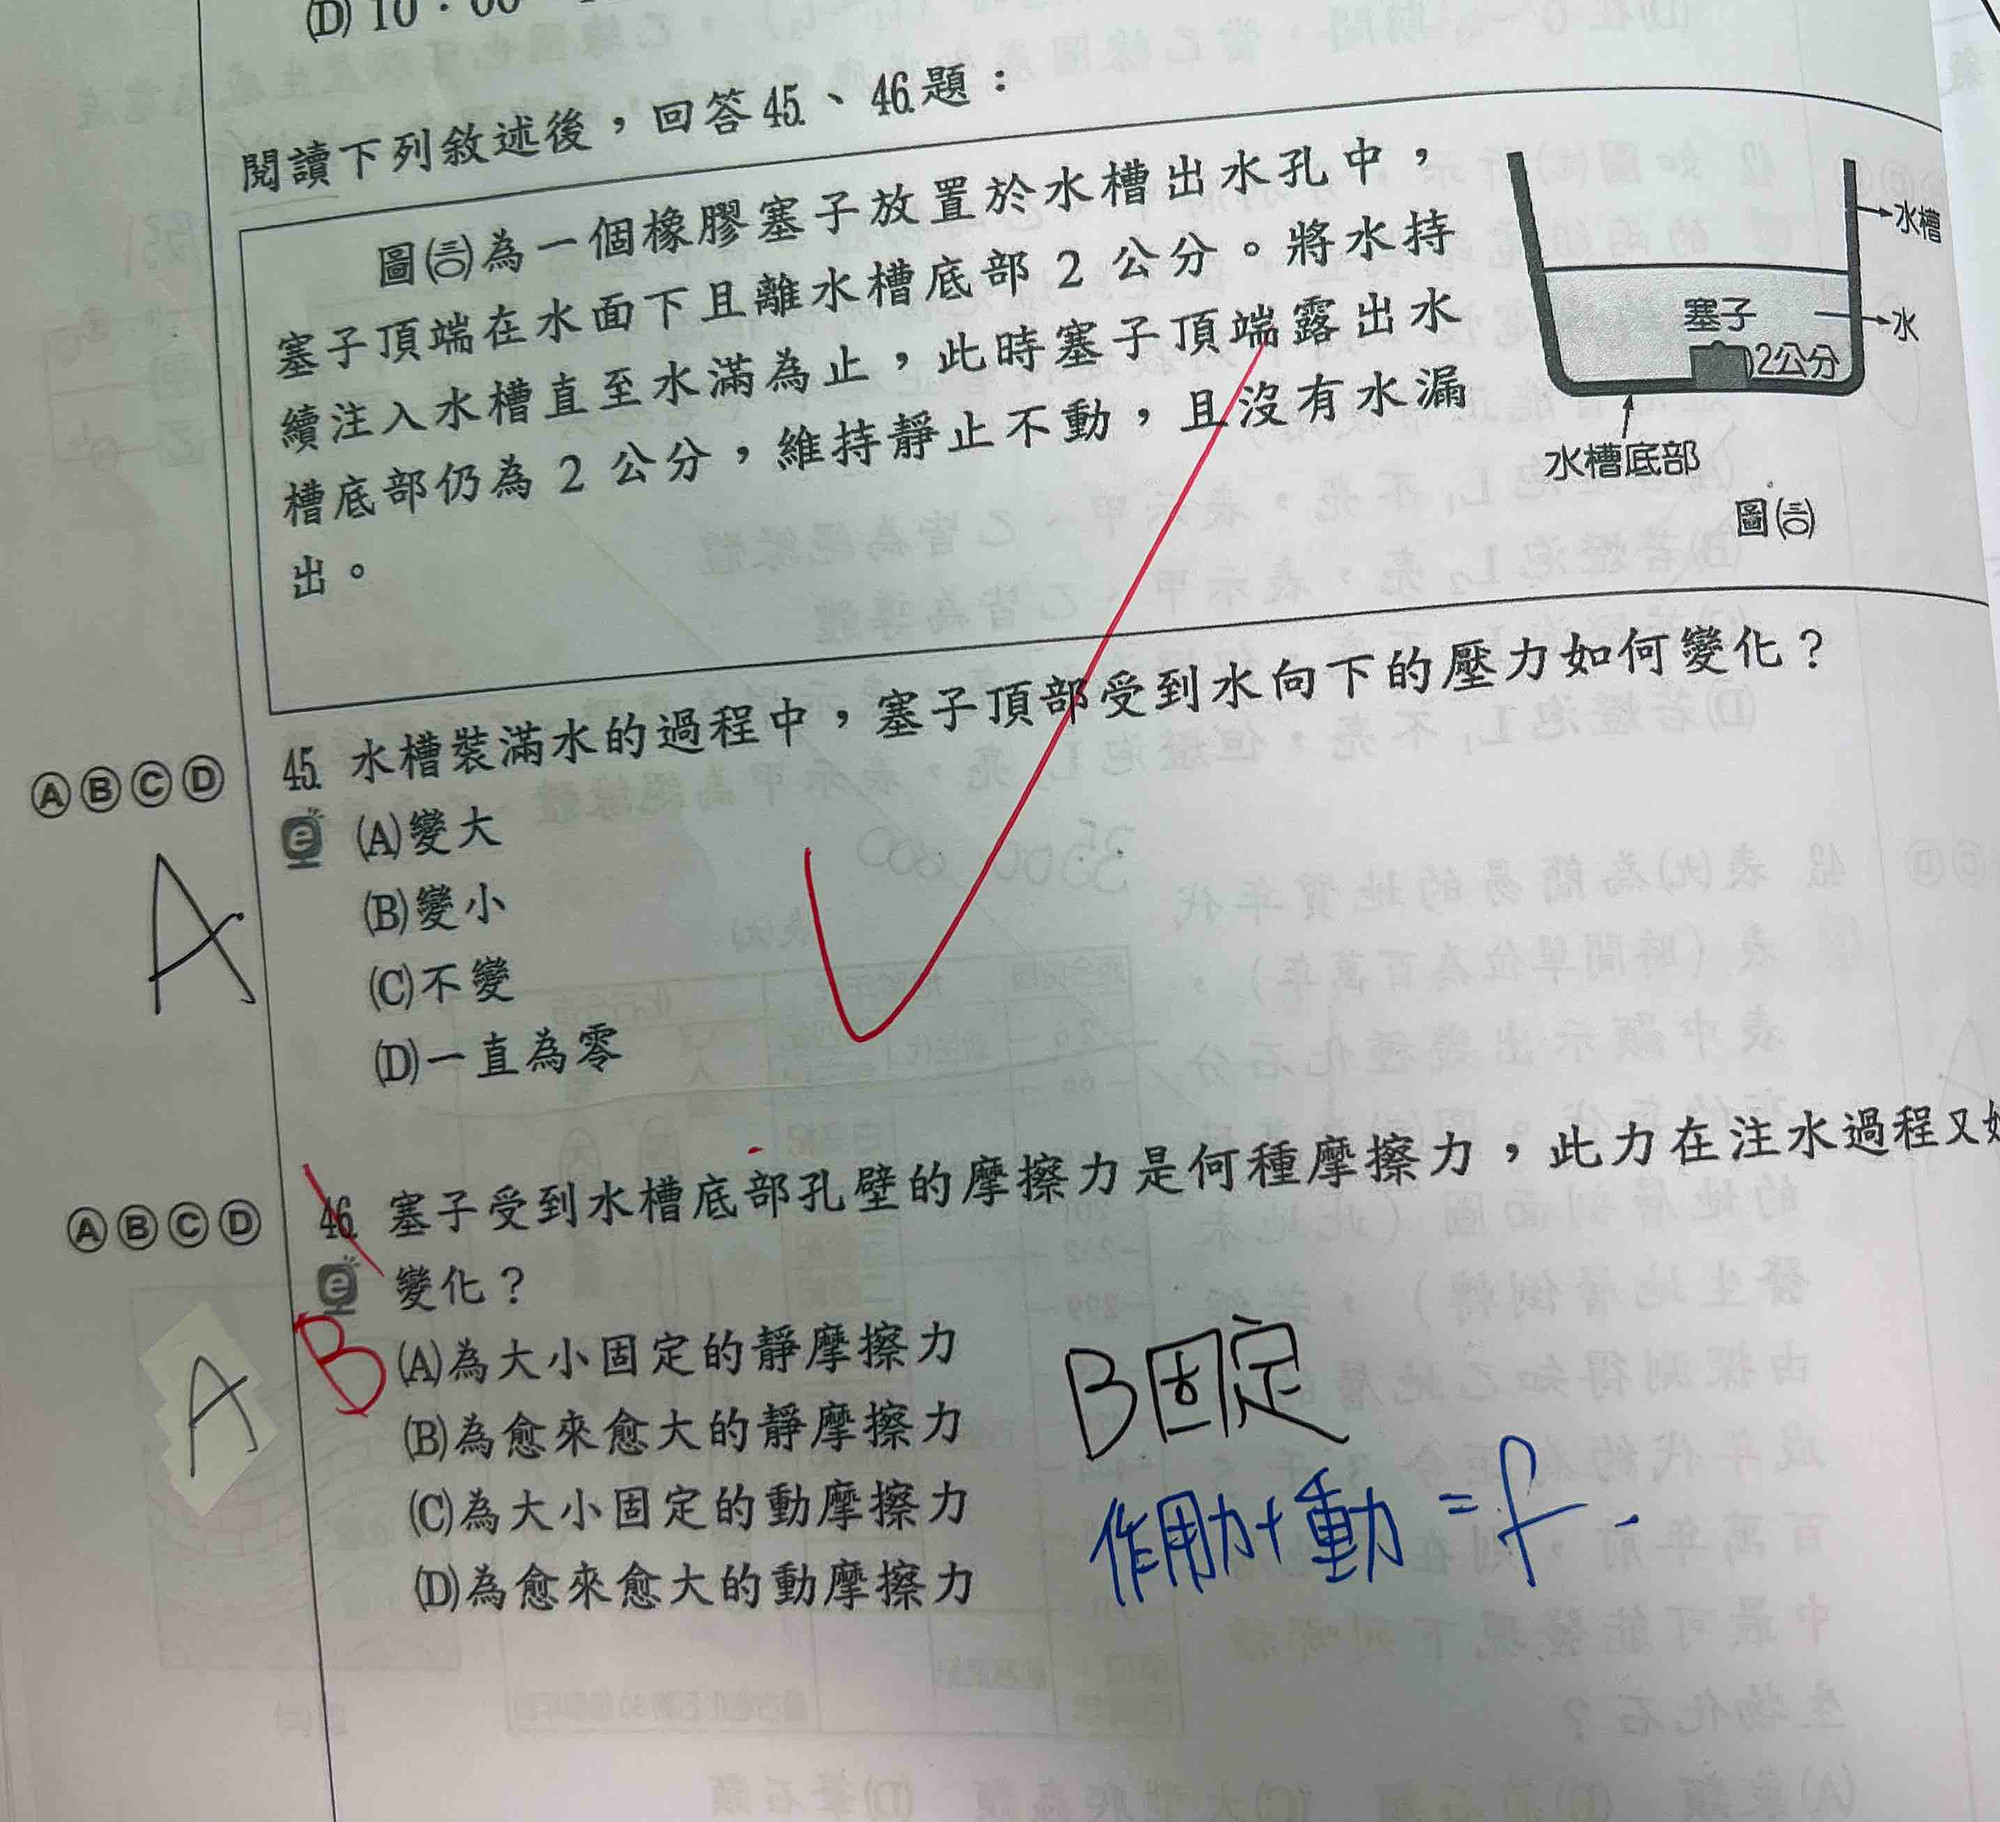 (D) 10：00
閱讀下列敘述後，回答45.、46.題：
圖(三十)為一個橡膠塞子放置於水槽出水孔中，
塞子頂端在水面下且離水槽底部 2 公分。將水持
續注入水槽直至水滿為止，此時塞子頂端露出水
槽底部仍為 2 公分，維持靜止不動，且沒有水漏
出。
水槽
塞子
水
2公分
水槽底部
圖(三十)
ⒶⒷⒸⒹ 45. 水槽裝滿水的過程中，塞子頂部受到水向下的壓力如何變化？
(A)變大
(B)變小
(C)不變
(D)一直為零
A
ⒶⒷⒸⒹ 46. 塞子受到水槽底部孔壁的摩擦力是何種摩擦力，此力在注水過程又
變化？
(A)為大小固定的靜摩擦力
(B)為愈來愈大的靜摩擦力
(C)為大小固定的動摩擦力
(D)為愈來愈大的動摩擦力
A
B
B固定
作用力+重力=f